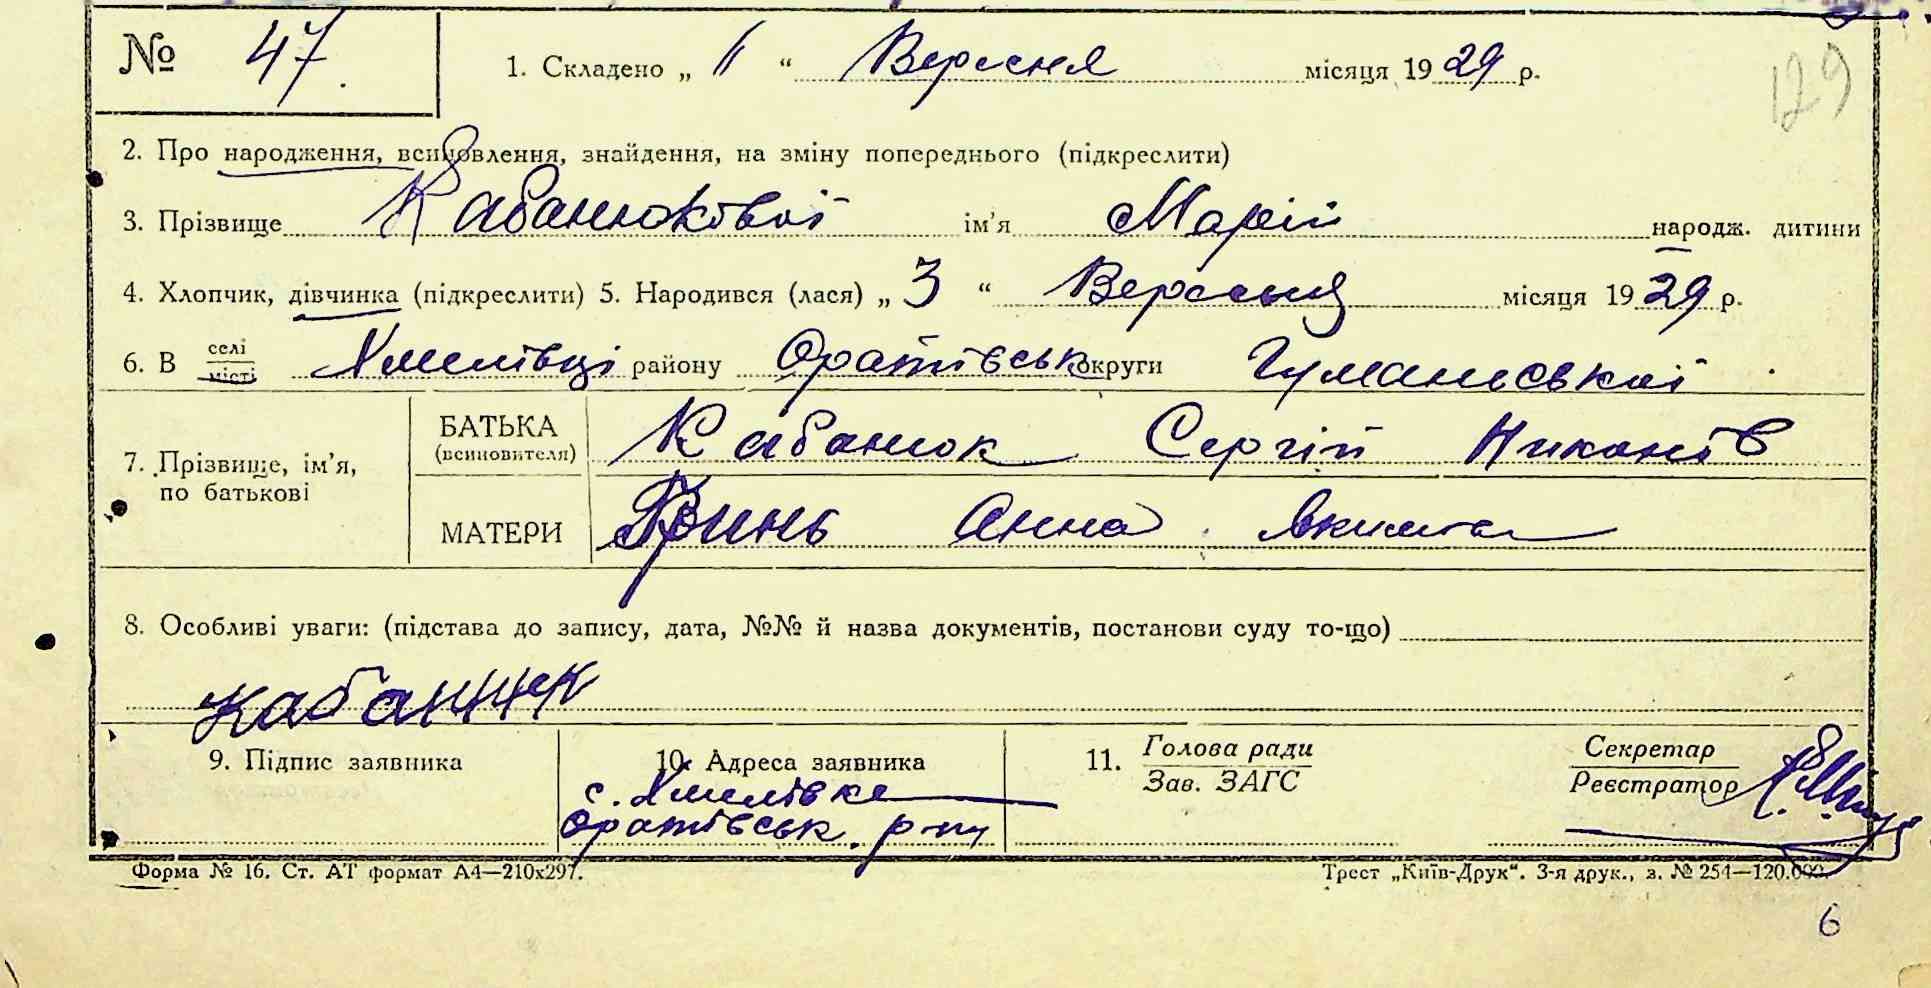 № 47. 1. Складено „ 11 “ Вересня місяця 1929 р. 129
2. Про народження, всиновлення, знайдення, на зміну попереднього (підкреслити)
3. Прізвище Кабанюкової ім’я Марій народж. дитини
4. Хлопчик, дівчинка (підкреслити) 5. Народився (лася) „ 3 “ Вересня місяця 1929 р.
6. В селі
місті Хмелівці району Оратівськ округи Гуманьської
7. Прізвище, ім’я,
по батькові
БАТЬКА
(всиновителя) Кабанюк Сергій Никонів
МАТЕРИ Гринь Анна Якимова
8. Особливі уваги: (підстава до запису, дата, №№ й назва документів, постанови суду то-що)
Кабанюк
9. Підпис заявника
10. Адреса заявника
с. Хмелівка
Оратівськ. р-ну
11. Голова ради
Зав. ЗАГС
Секретар
Реєстратор
Форма № 16. Ст. АТ формат А4—210х297. Трест „Київ-Друк“. 3-я друк., з. № 254—120.000.
6